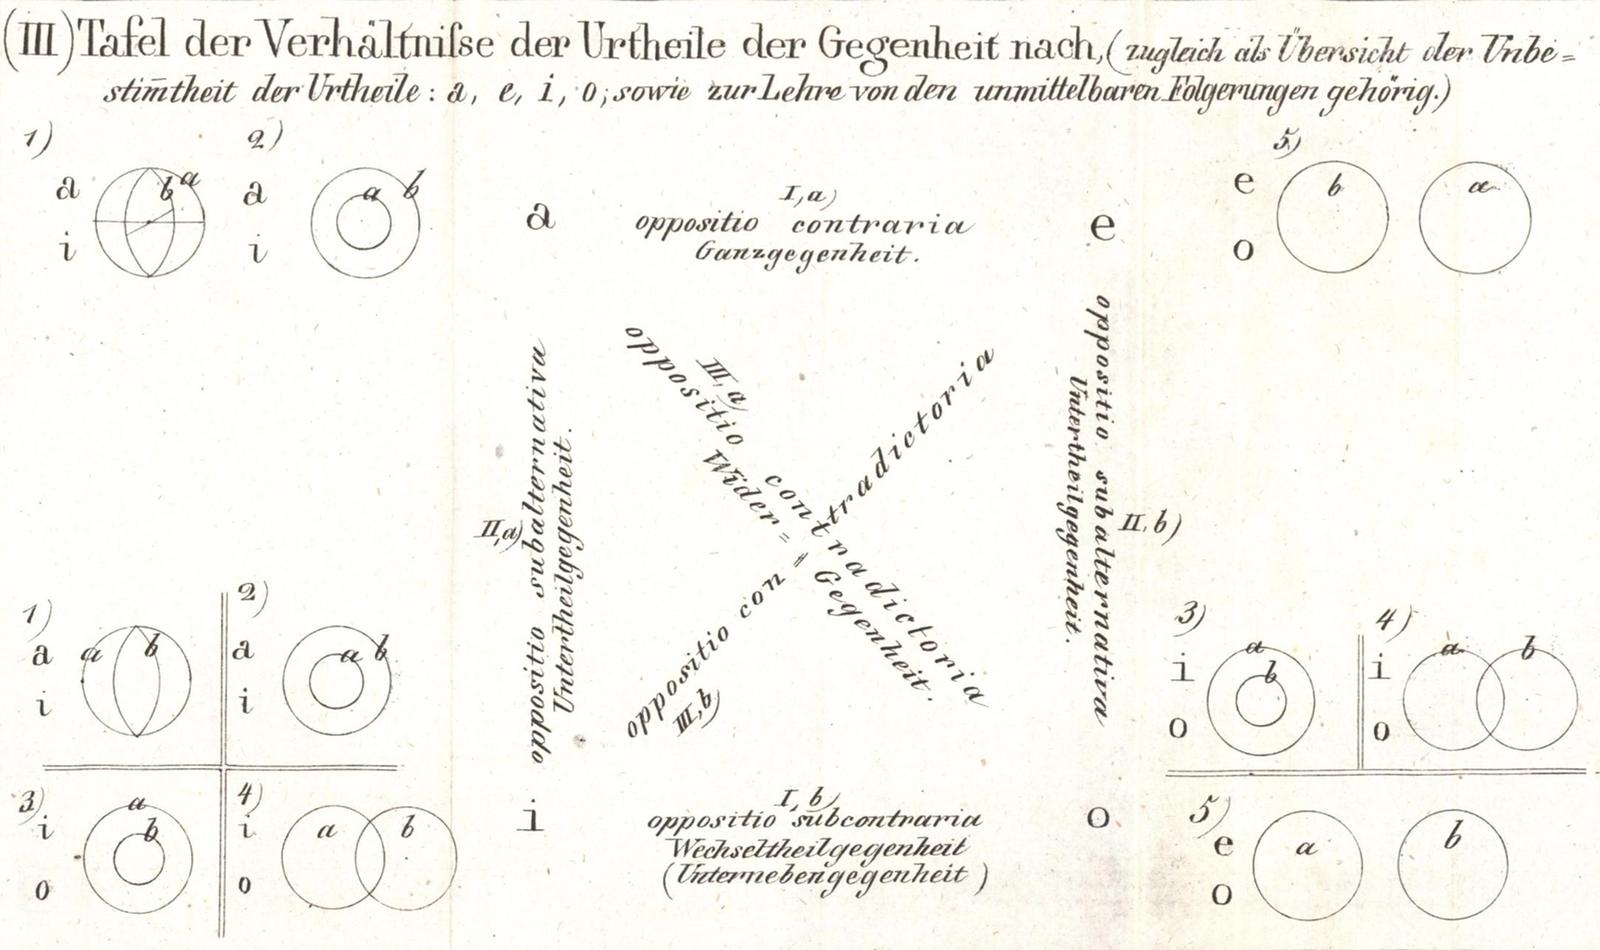 (III) Tafel der Verhältniſse der Urtheile der Gegenheit nach, (zugleich als Übersicht der Unbe=
stim̄theit der Urtheile: a, e, i, o; sowie zur Lehre von den unmittelbaren Folgerungen gehörig.)
1)
a
i
b a
2)
a
i
a b
a
I, a)
oppositio contraria
Ganzgegenheit.
e
5.)
e
o
b
a
II, a)
oppositio subalternativa
Untertheilgegenheit.
III, a
oppositio contradictoria
Wider= =Gegenheit.
oppositio contradictoria
III, b)
oppositio subalternativa
Untertheilgegenheit.
II, b)
1)
a
i
a b
2)
a
i
a b
3)
i
o
a
b
4)
i
o
a b
i
I, b)
oppositio subcontraria
Wechseltheilgegenheit
(Unternebengegenheit)
o
3)
i
o
a
b
4)
i
o
a b
5)
e
o
a
b